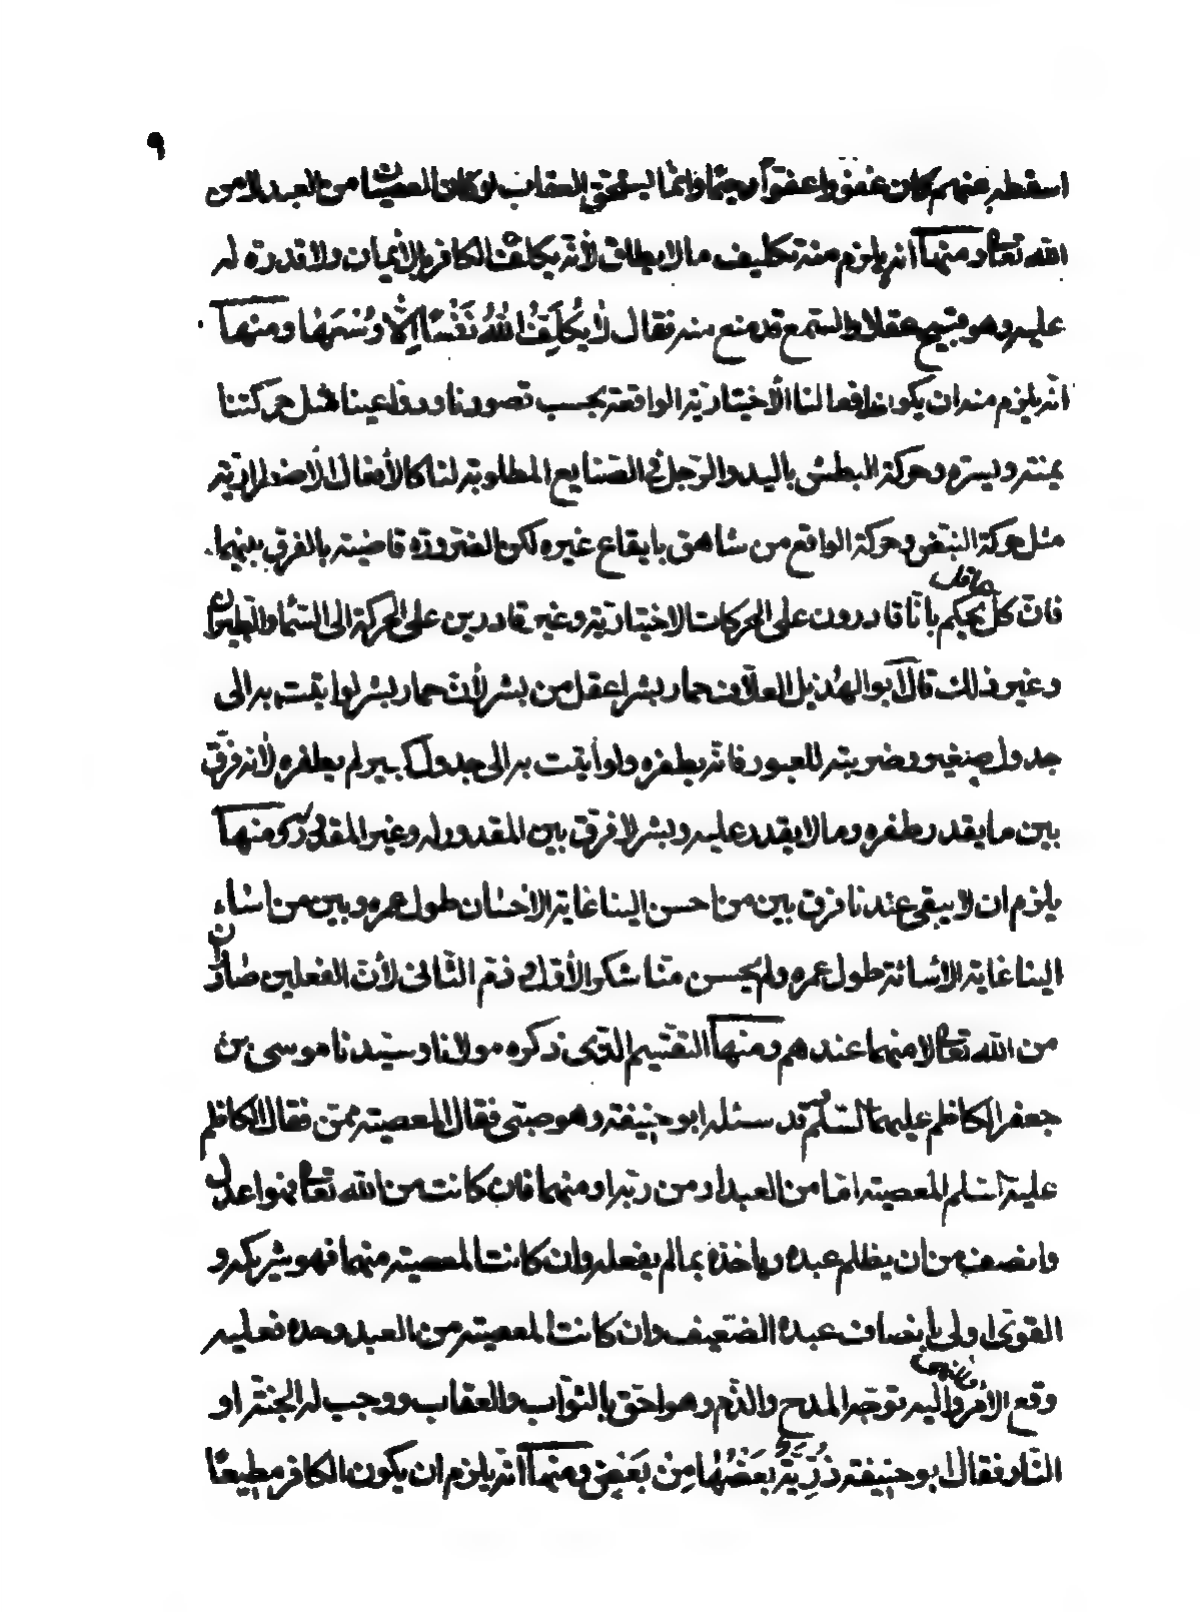 ٩
اسقطه عنهم كان غفورا عفوّا رحيمًا وانما يستحق العقاب لو كان العصيان من العبد لا من
الله تعالى ومنها انه يلزم منه تكليف ما لا يطاق لأنّه يكلّف الكافر بالأيمان ولا قدرة له
عليه وهو قبيح عقلا والسّمع قد منع منه فقال لَا يُكَلِّفُ اللهُ نَفْسًا اِلَّا وُسْعَهَا ومنها
انّه يلزم منه ان يكون افعالنا الأختياريّة الواقعة بحسب قصودنا ودواعينا مثل حركتنا
يمنة ويسرة وحركة البطش باليد والرّجل في الصّنايع المطلوبة لنا كالأفعال الأضطراريّة
مثل حركة النبض وحركة الواقع من شاهق بايقاع غيره لكن الضرورة قاضية بالفرق بينهما
فانّ كلّ عاقل يحكم بانّا قادرون على الحركات الاختياريّة وغير قادرين على الحركة الى السّماء والطيران
وغير ذلك قال ابو الهذيل العلاّف حمار بشر اعقل من بشر لأنّ حمار بشر لو اتيت به الى
جدول صغير وضربته للعبور فانّه يطفره ولو أتيت به الى جدول كبير لم يطفره لأنه فرّق
بين ما يقدر طفره وما لا يقدر عليه وبشر لا فرق بين المقدور له وغير المقدور ومنها
يلزم ان لا يبقى عندنا فرق بين من احسن الينا غاية الاحسان طول عمره وبين من اساء
الينا غاية الاسائة طول عمره ولم يحسن منّا شكر الأوّل وذم الثّاني لأنّ الفعلين صادران
من الله تعالى لا منهما عندهم ومنها التقسيم الّذى ذكره مولانا وسيّدنا موسى بن
جعفر الكاظم عليهما السّلم وقد سئله ابو حنيفة وهو صبّى فقال المعصية ممّن فقال الكاظم
عليه السّلم المعصية امّا من العبد او من ربّه او منهما فان كانت من الله تعالى فهو اعدل
وانصف من ان يظلم عبده وياخذه بما لم يفعله وان كانت المعصية منهما فهو شريكه و
القوىّ اولى بانصاف عبده الضّعيف وان كانت المعصية من العبد وحده فعليه
وقع الأمر واليه توجّه المدح والذّم وهو احقّ بالثّواب والعقاب ووجب له الجنّة او
النّار فقال ابو حنيفة ذُرِّيَّةً بَعْضُهَا مِنْ بَعْضٍ ومنها انّه يلزم ان يكون الكافر مطيعًا